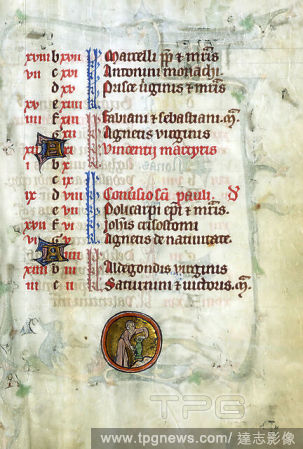 xviii b xvii Marcelli pp et mris
vii c xvi Antonini monachi
d xv Prisce virginis et mris
xv e xiiii
iiii f xiii Fabiani et sebastiani. m
xii Agnetis virginis
xi Vincentij martyris
c ix Conversio sci pauli.
ix d viii
e vii Policarpi epi et mris.
xvii f vi Johis crisostomi
vi Agnetis de nativitate.
xiiii b iii Aldegondis virginis
iii c ii Saturnini et victoris. m
TPG
www.tpgnews.com/ 達志影像